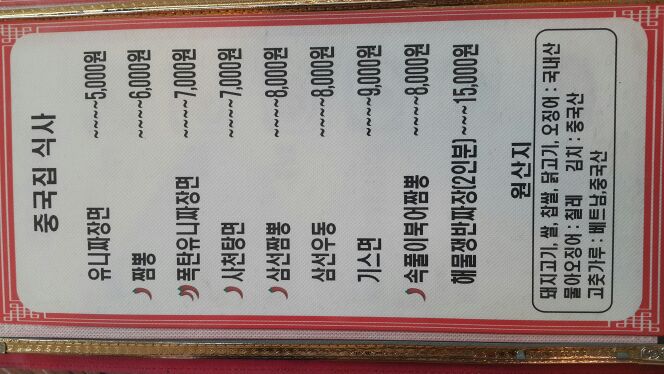 중국집 식사
유니짜장면 ~~~~5,000원
짬뽕 ~~~~6,000원
폭탄유니짜장면 ~~~~7,000원
사천탕면 ~~~~7,000원
삼선짬뽕 ~~~~8,000원
삼선우동 ~~~~8,000원
기스면 ~~~~9,000원
속풀이북어짬뽕 ~~~~8,000원
해물쟁반짜장(2인분) ~~~15,000원
원산지
돼지고기, 쌀, 찹쌀, 닭고기, 오징어 : 국내산
물아오징어 : 칠레 김치 : 중국산
고춧가루 : 베트남,중국산